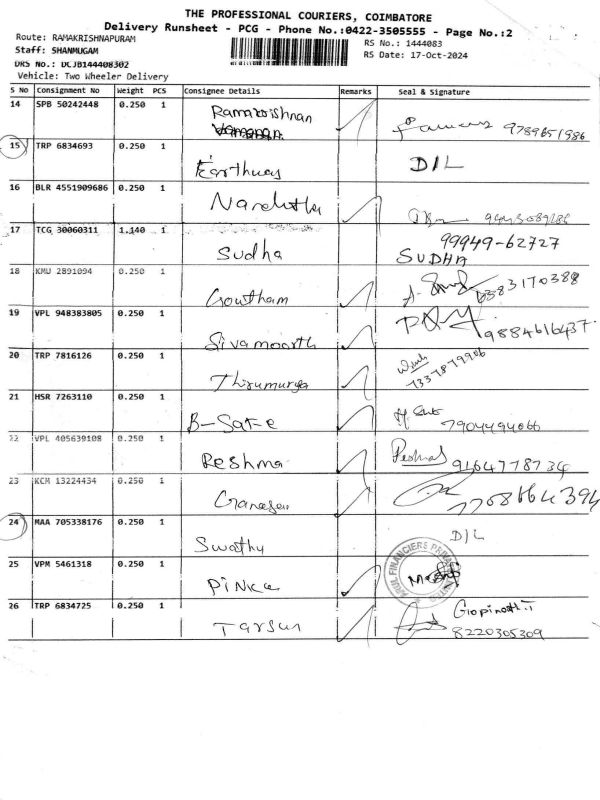 THE PROFESSIONAL COURIERS, COIMBATORE
Delivery Runsheet - PCG - Phone No.:0422-3505555 - Page No.:2
Route: RAMAKRISHNAPURAM
RS No.: 1444083
Staff: SHANMUGAM
RS Date: 17-Oct-2024
DRS No.: DCJB144408302
Vehicle: Two Wheeler Delivery
S No Consignment No Weight PCS Consignee Details Remarks Seal & Signature
14 SPB 50242448 0.250 1 Ramakrishnan
9789651986
15 TRP 6834693 0.250 1 D/L
16 BLR 4551909686 0.250 1
17 TCG 30060311 1.140 1 Sudha 99949-62727
SUDHA
18 KMU 2891094 0.250 1 Goutham 6383170388
19 VPL 948383805 0.250 1 Sivamoorth 9884616437
20 TRP 7816126 0.250 1 Thirumuruga 7337879906
21 HSR 7263110 0.250 1 7904494066
22 VPL 405639108 0.250 1 Reshma 9164778734
23 KCM 13224434 0.250 1 Ganesan 7708664394
24 MAA 705338176 0.250 1 Swathy D/L
25 VPM 5461318 0.250 1
26 TRP 6834725 0.250 1 Tarsun Gopinath.T
8220305309